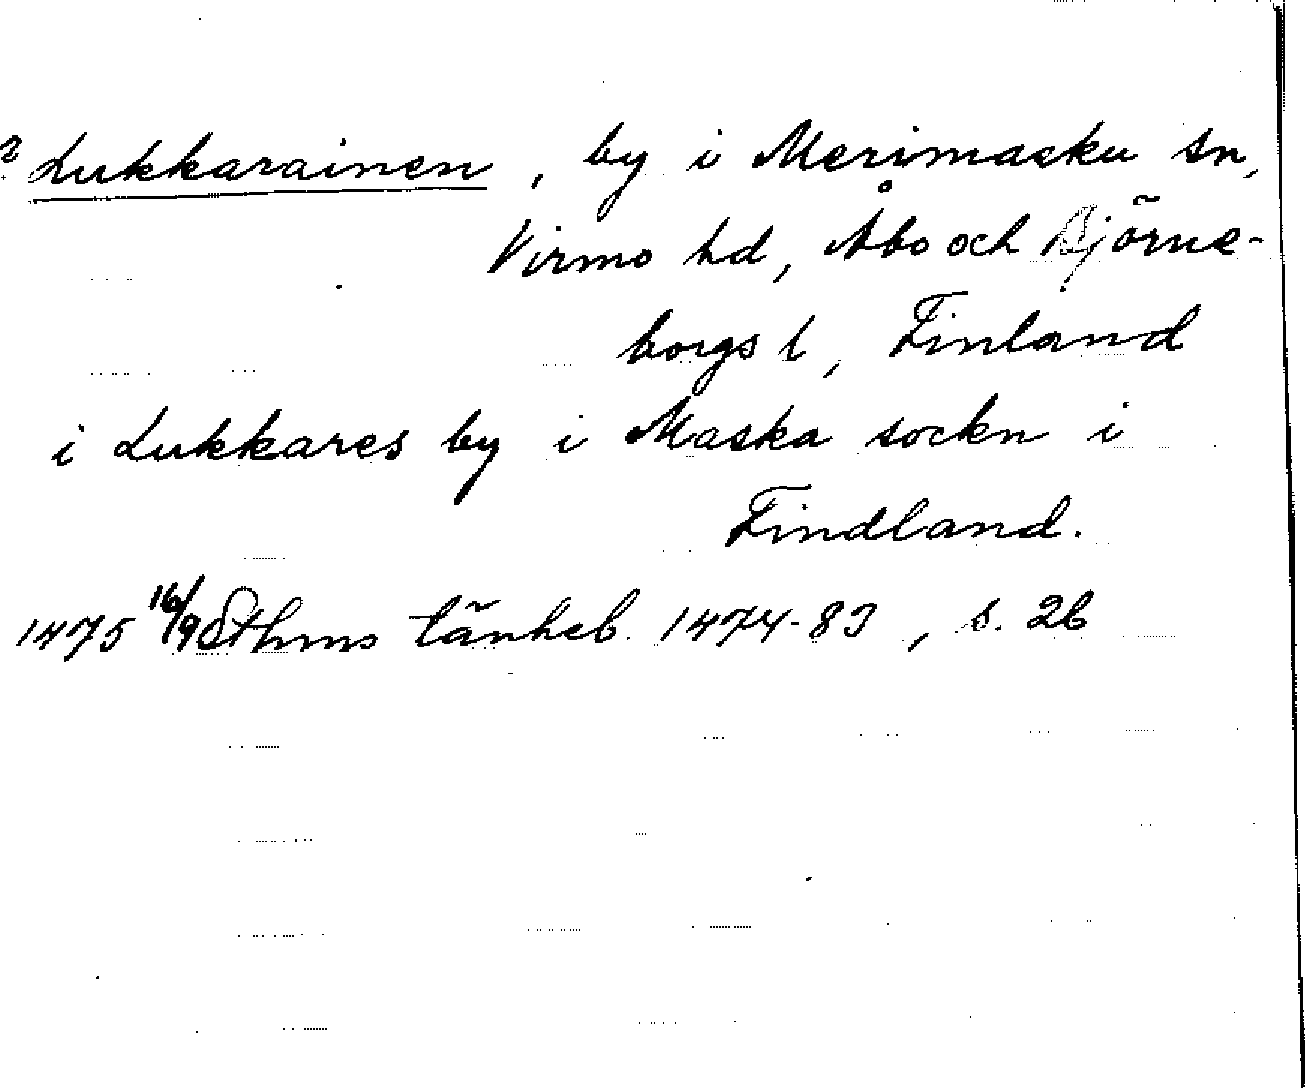 ? Lukkarainen, by i Merimasku sn,
Virmo hd, Åbo och Björne-
borgs l, Finland
i Lukkares by i Maska sockn i
Findland.
1475 16/9 Sthms tänkeb. 1474-83, s. 26